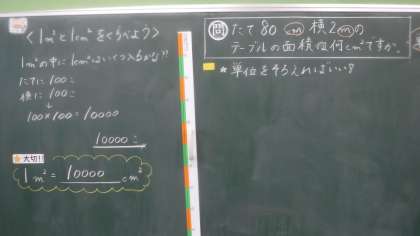 ＜1m²と1cm²をくらべよう＞
1m²の中に1cm²はいくつ入るかな？
たてに 100こ
横に 100こ
↓
100×100＝10000
10000こ
★大切!!
1m²＝10000cm²
問 たて80cm横2mの
テーブルの面積は何cm²ですか。
★単位をそろえればいい？